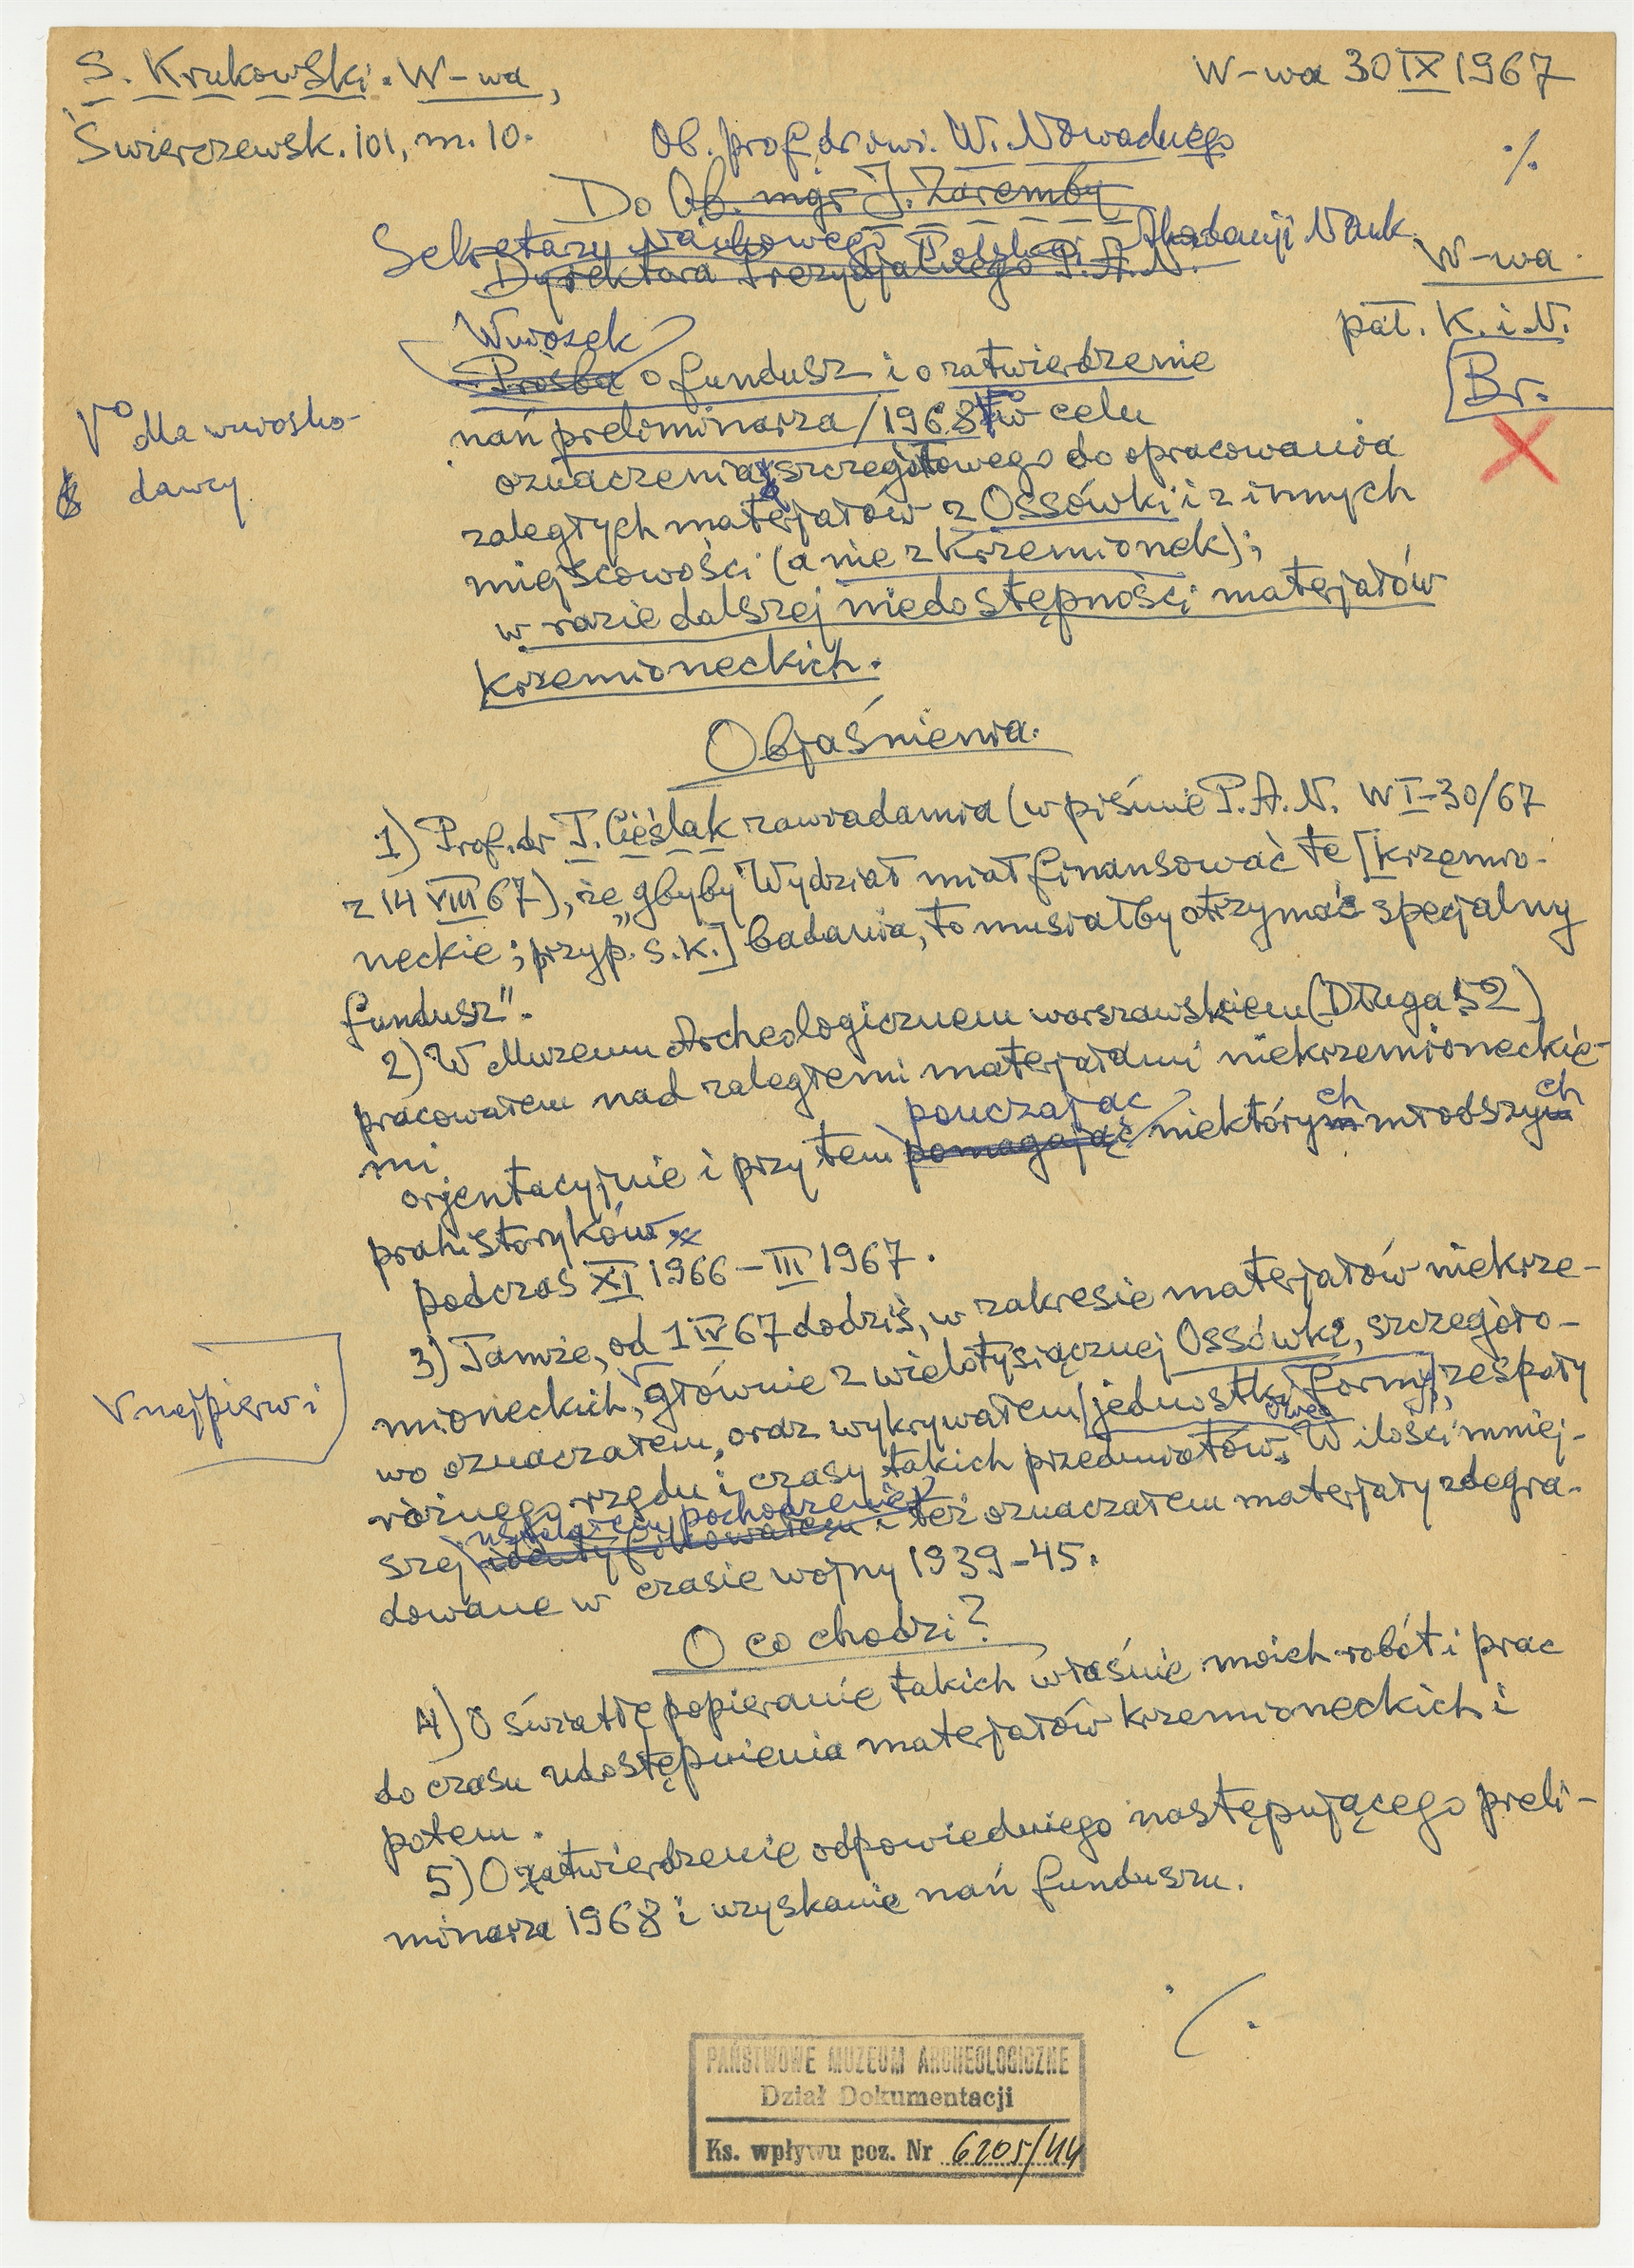 S. Krukowski. W-wa,
Świerczewsk. 101, m. 10.
W-wa 30 IX 1967
./.
Ob. prof. dr owi. W. Nowackiego
Do Ob. mgr J. Zaremby
Sekretarzy Naukowego Polskiej Akademji Nauk
Dyrektora Prezydjalnego P.A.N.
W-wa.
pał. K. i N.
Br.
Wniosek
Prośba o fundusz i o zatwierdzenie
nań preliminarza /1968 w celu
V° dla wniosko-
dawcy
oznaczenia szczegółowego do opracowania
zaległych materjałów z Ossówki i z innych
miejscowości (a nie z Krzemionek);
w razie dalszej niedostępności materjałów
krzemioneckich.
Objaśnienia.
1) Prof. dr T. Cieślak zawiadamia (w piśmie P.A.N. W I-30/67
z 14 VIII 67), że „gbyby Wydział miał finansować te [krzemio-
neckie; przyp. s.k.] badania, to musiałby otrzymać specjalny
fundusz".
2) W Muzeum Archeologicznem warszawskiem (Długa 52)
pracowałem nad zaległemi materjałami niekrzemioneckie-
mi
pouczając ch ch
orjentacyjnie i przy tem pomagając niektórym młodszym
prahistoryków
podczas XI 1966 – III 1967.
3) Tamże, od 1 IV 67 do dziś, w zakresie materjałów niekrze-
mioneckich, V głównie z wielotysiącznej Ossówki, szczegóło-
V najpierw i
wo oznaczałem, oraz wykrywałem jednostki formy, zespoły
różnego rzędu i czasy takich przedmiotów. W ilości mniej-
ustalałem pochodzenie
szej identyfikowałem i też oznaczałem materjały zdegra-
dowane w czasie wojny 1939-45.
O co chodzi?
4) O światłe popieranie takich właśnie moich robót i prac
do czasu udostępnienia materjałów krzemioneckich i
potem.
5) O zatwierdzenie odpowiedniego następującego preli-
minarza 1968 i uzyskanie nań funduszu.
./.
PAŃSTWOWE MUZEUM ARCHEOLOGICZNE
Dział Dokumentacji
Ks. wpływu poz. Nr 6205/44